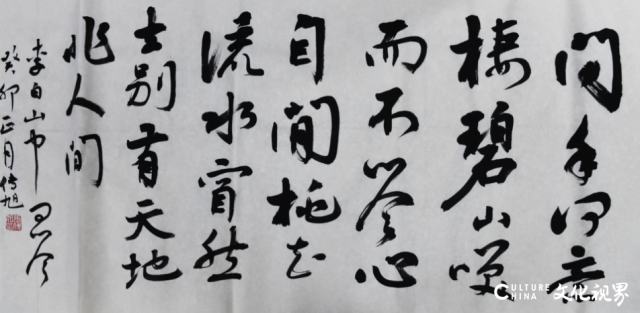 问余何意
棲碧山咲
而不答心
自閒桃花
流水窅然
去别有天地
非人间
李白山中问答
癸卯正月传旭
CULTURE
CHINA 文化视界